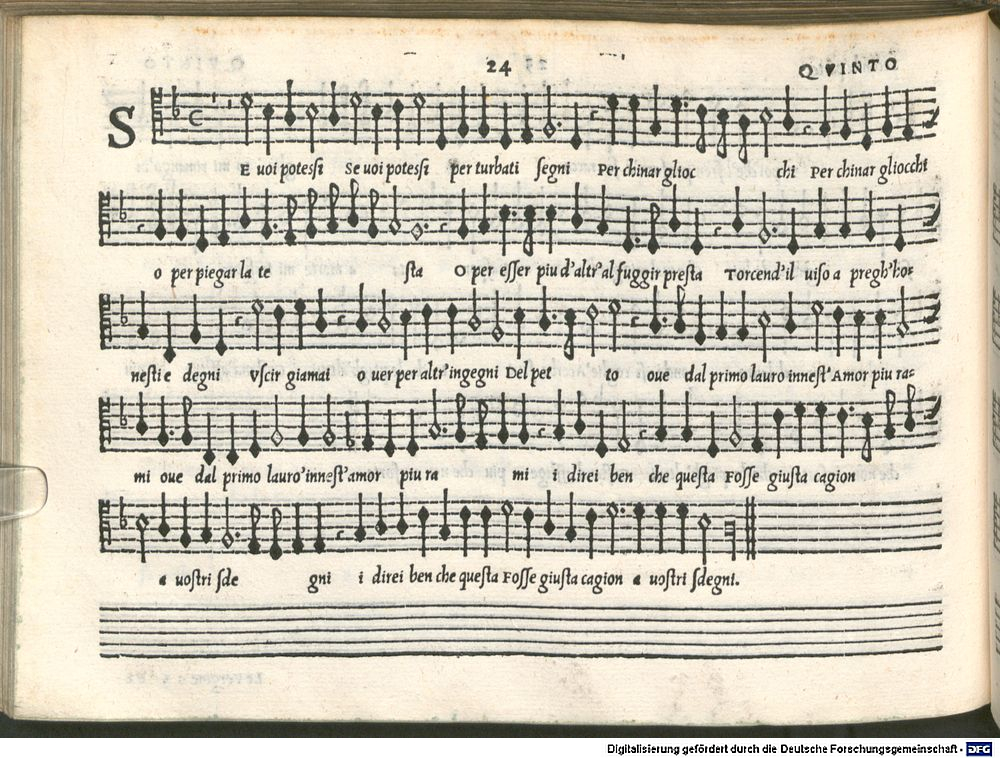 24 QVINTO
S E voi potessi Se voi potessi per turbati segni Per chinar glioc chi Per chinar gliocchi
o per piegar la te sta O per esser piu d'altr'al fuggir presta Torcend'il viso a pregh'ho-
nesti e degni Vscir giamai o ver per altr'ingegni Del pet to oue dal primo lauro innest'Amor piu ra-
mi oue dal primo lauro'innest'amor piu ra mi i direi ben che questa Fosse giusta cagion
a vostri sde gni i direi ben che questa Fosse giusta cagion a vostri sdegni.
Digitalisierung gefördert durch die Deutsche Forschungsgemeinschaft - DFG